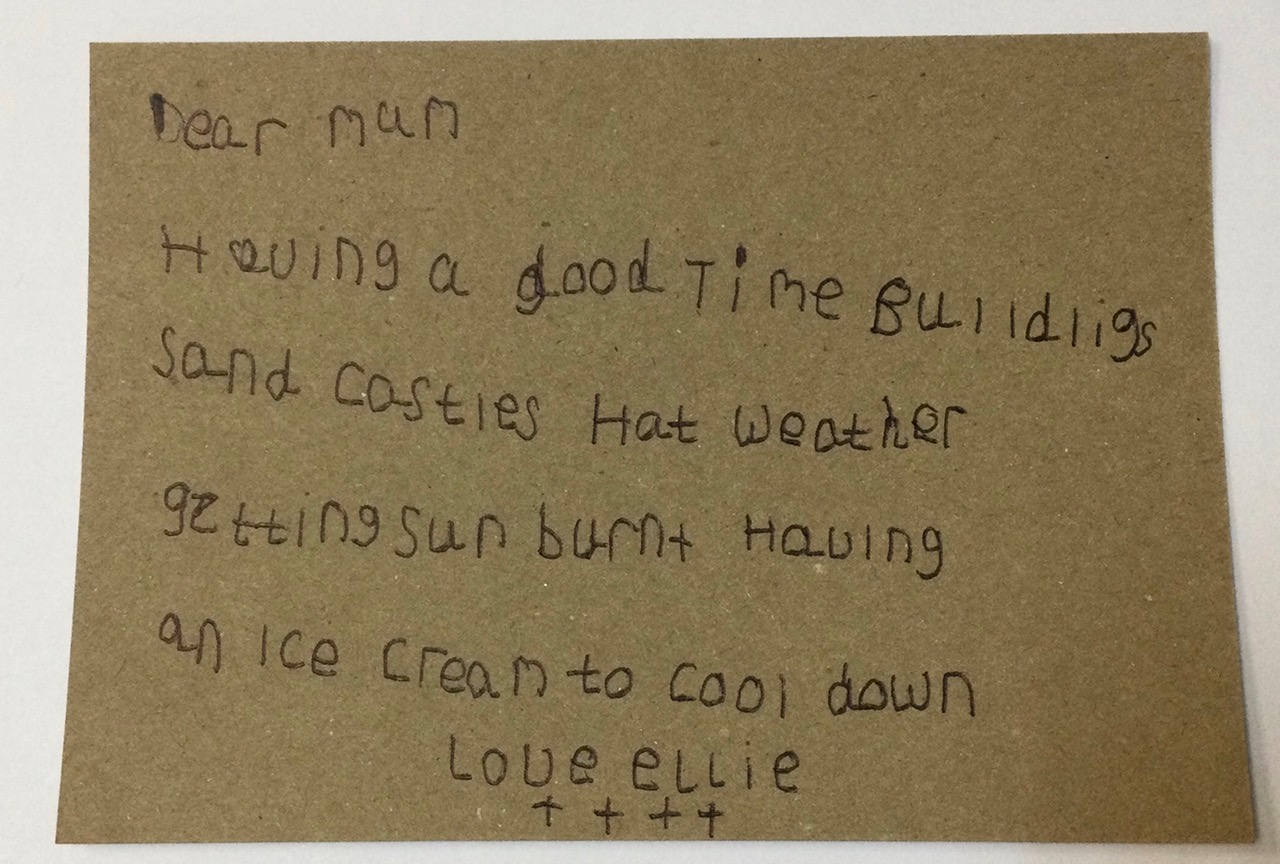 Dear mum
Having a good Time Buildligs
sand castles Hat weather
getting sun burnt Having
an ice cream to cool down
Love ellie
+ + + +